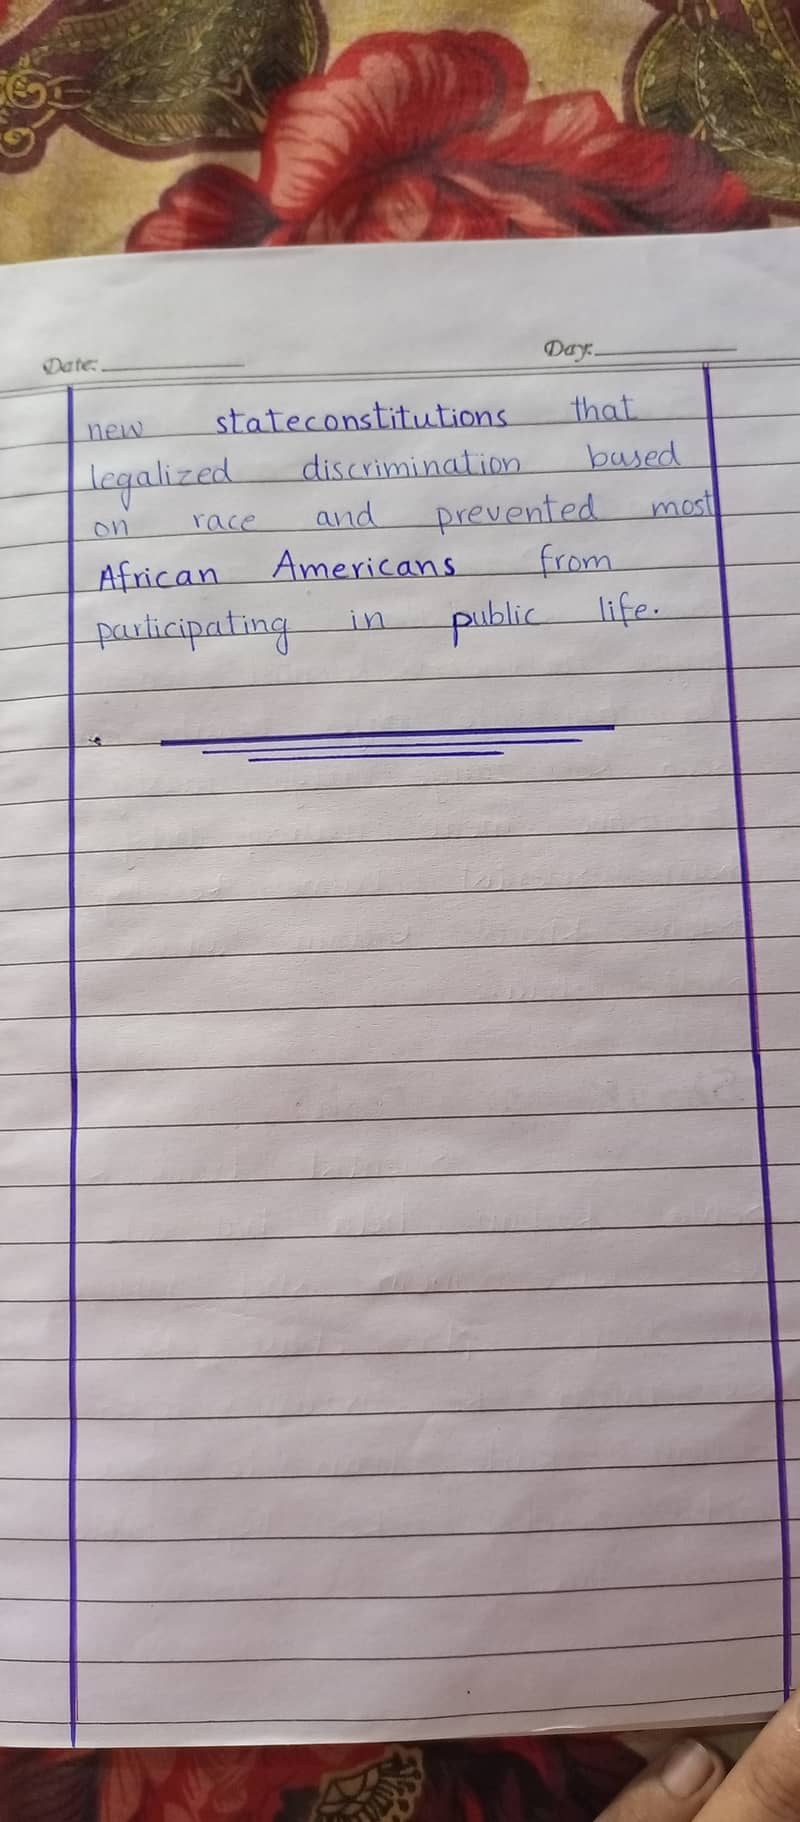 Date:
Day:
new stateconstitutions that
legalized discrimination based
on race and prevented most
African Americans from
participating in public life.